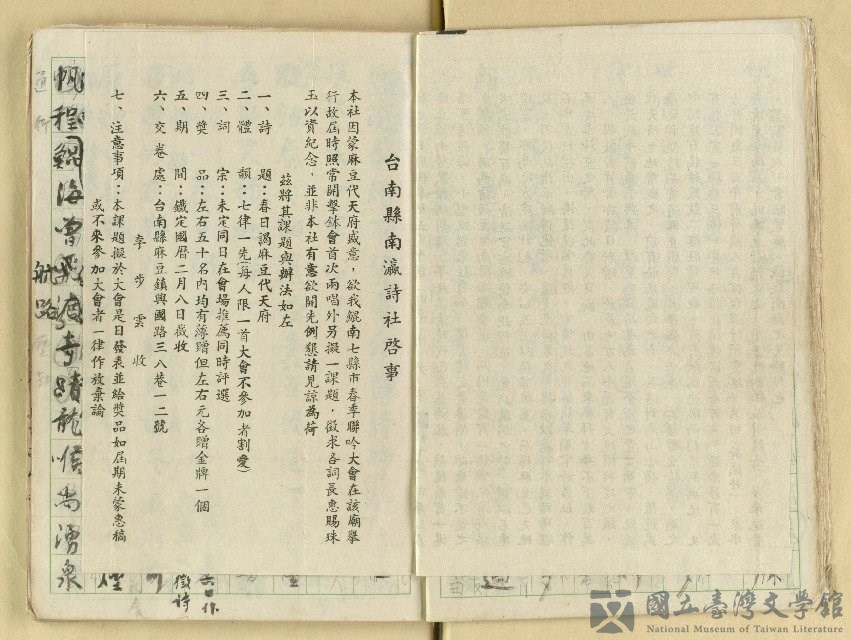 台南縣南瀛詩社啓事
本社因蒙麻豆代天府盛意，欲我鯤南七縣市春季聯吟大會在該廟舉
行故屆時照常開擊鉢會首次兩唱外另擬一課題，徵求各詞長惠賜珠
玉以資紀念，並非本社有意欲開先例懇請見諒為荷
茲將其課題與辦法如左
一、詩　　題：春日謁麻豆代天府
二、體　　韻：七律一先(每人限一首大會不參加者割愛)
三、詞　　宗：未定同日在會場推薦同時評選
四、獎　　品：左右五十名內均有薄贈但左右元各贈金牌一個
五、期　　間：鐵定國曆二月八日截收
六、交卷處：台南縣麻豆鎮興國路三八巷一二號
李步雲收
七、注意事項：本課題擬於大會是日發表並給獎品如屆期未蒙惠稿
或不來參加大會者一律作放棄論
帆程鯤海曾
航路
奇蹟龍喉尚湧泉
徵詩
國立臺灣文學館
National Museum of Taiwan Literature